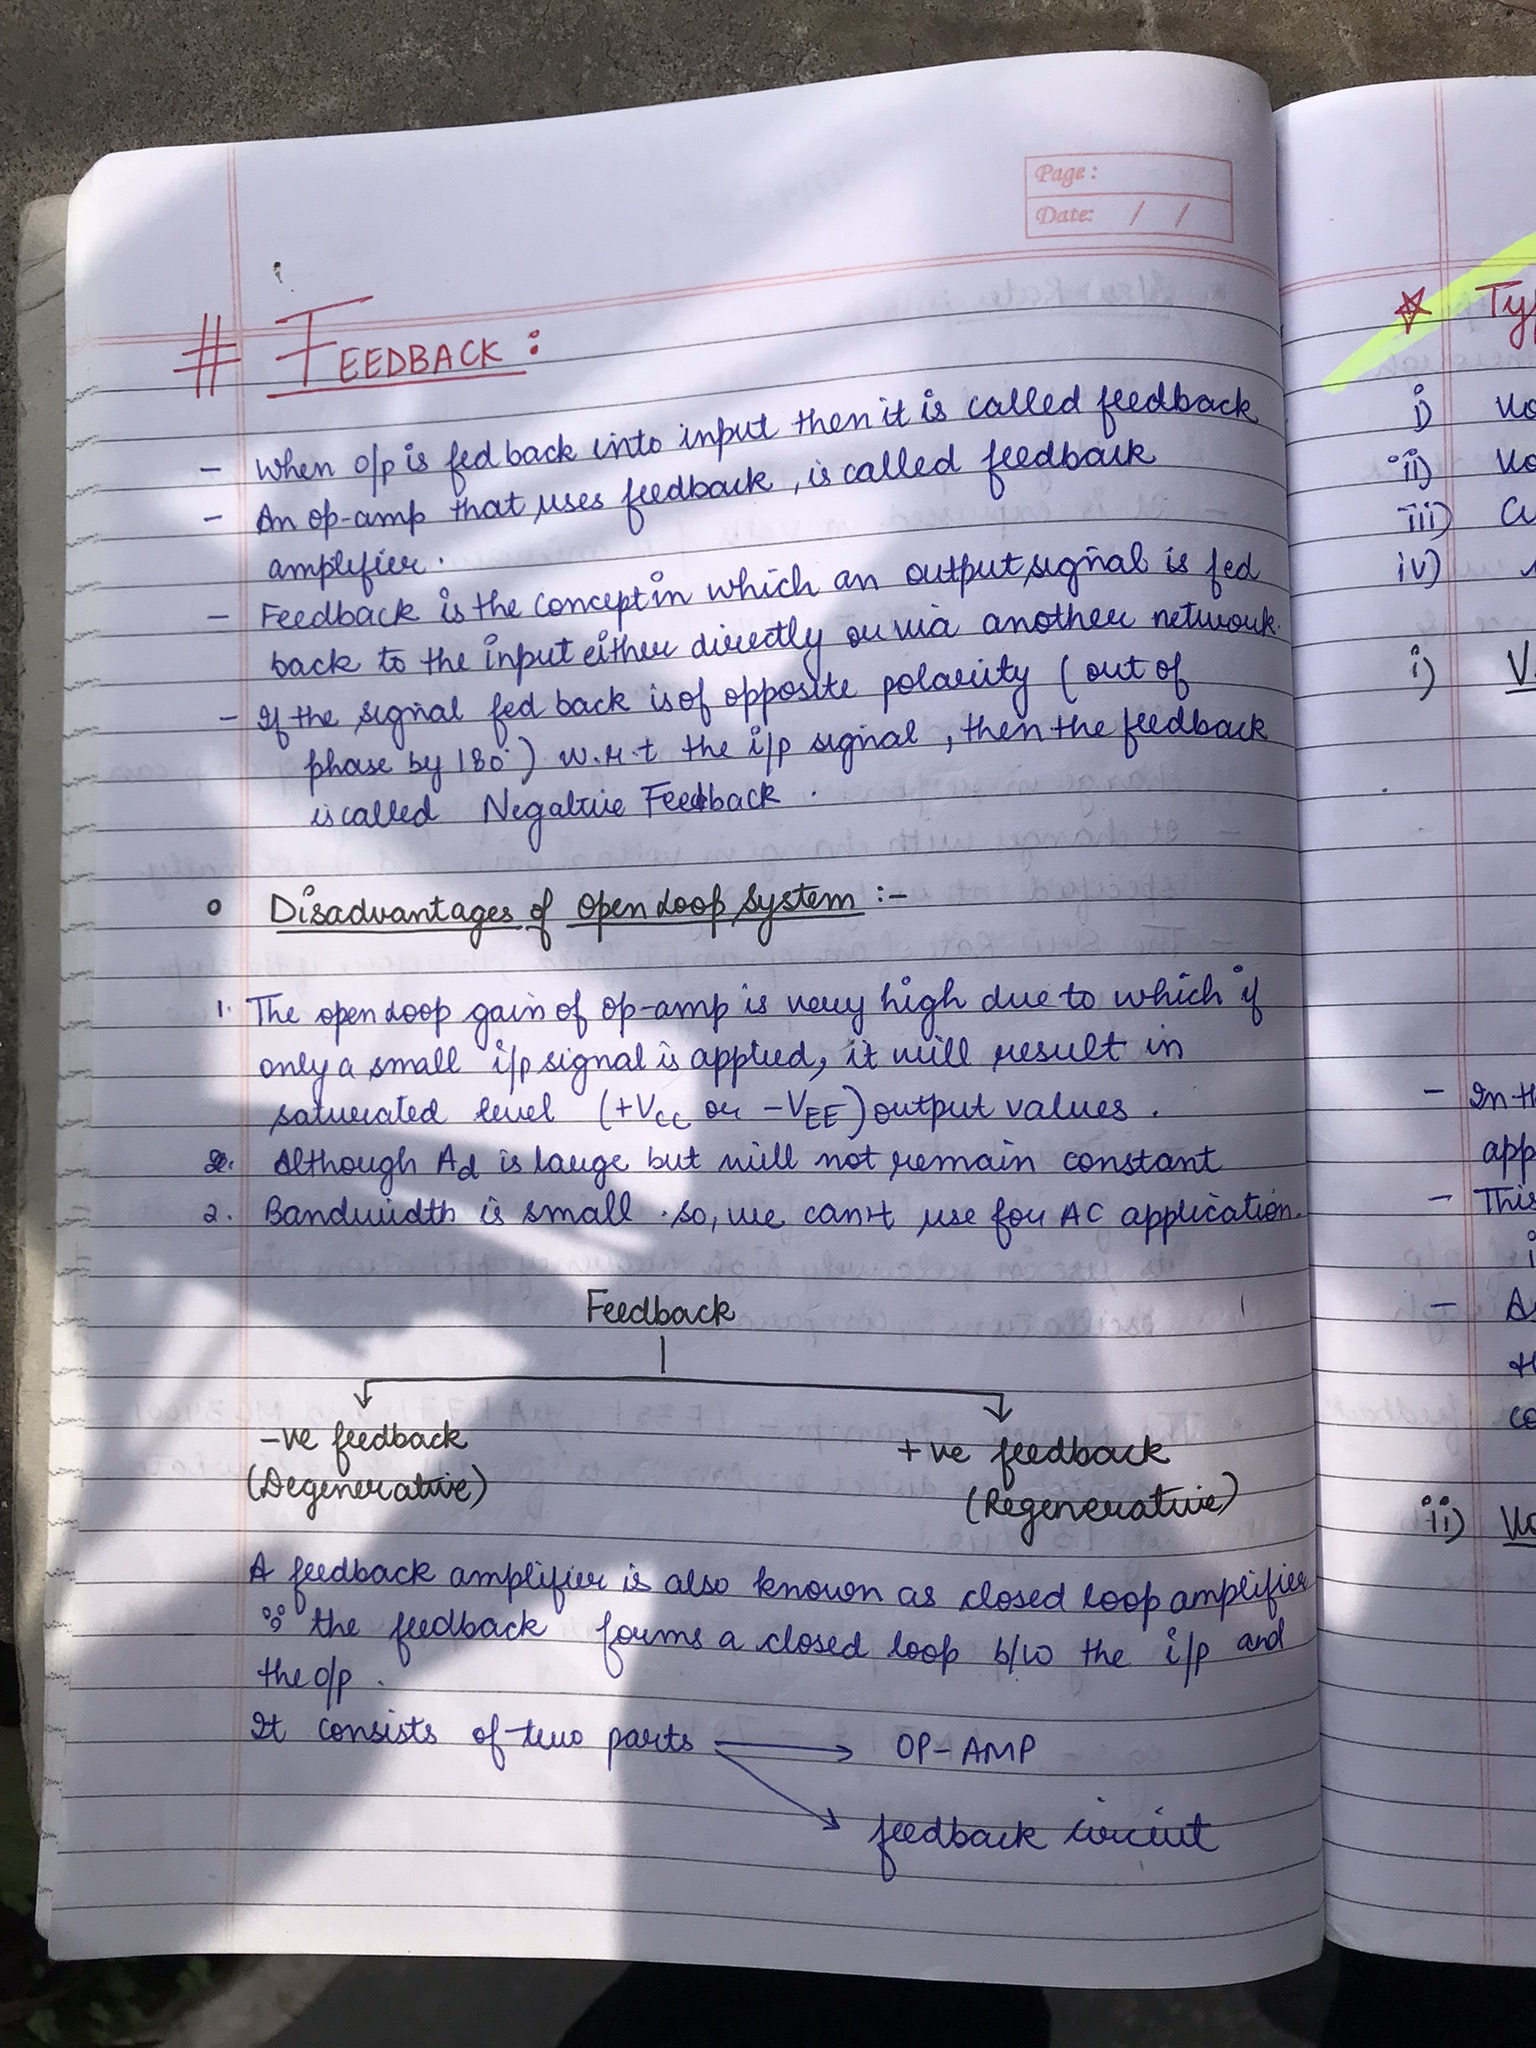 Page:
Date: / /
# FEEDBACK:
- When o/p is fed back into input then it is called feedback
- An op-amp that uses feedback, is called feedback
amplifier.
- Feedback is the concept in which an output signal is fed
back to the input either directly or via another network.
- If the signal fed back is of opposite polarity (out of
phase by 180°) w.r.t the i/p signal, then the feedback
is called Negative Feedback.
o Disadvantages of open loop system :-
1. The open loop gain of op-amp is very high due to which if
only a small i/p signal is applied, it will result in
saturated level (+VCC or -VEE) output values.
2. Although Ad is large but will not remain constant
2. Bandwidth is small. so, we can't use for AC application.
Feedback
-ve feedback
(Degenerative)
+ve feedback
(Regenerative)
A feedback amplifier is also known as closed loop amplifier
∵ the feedback forms a closed loop b/w the i/p and
the o/p.
It consists of two parts → OP-AMP
→ feedback circuit
☆ Ty
i)
ii)
iii)
iv)
i) V.
- In th
app
- This
i
- As
th
co
ii)